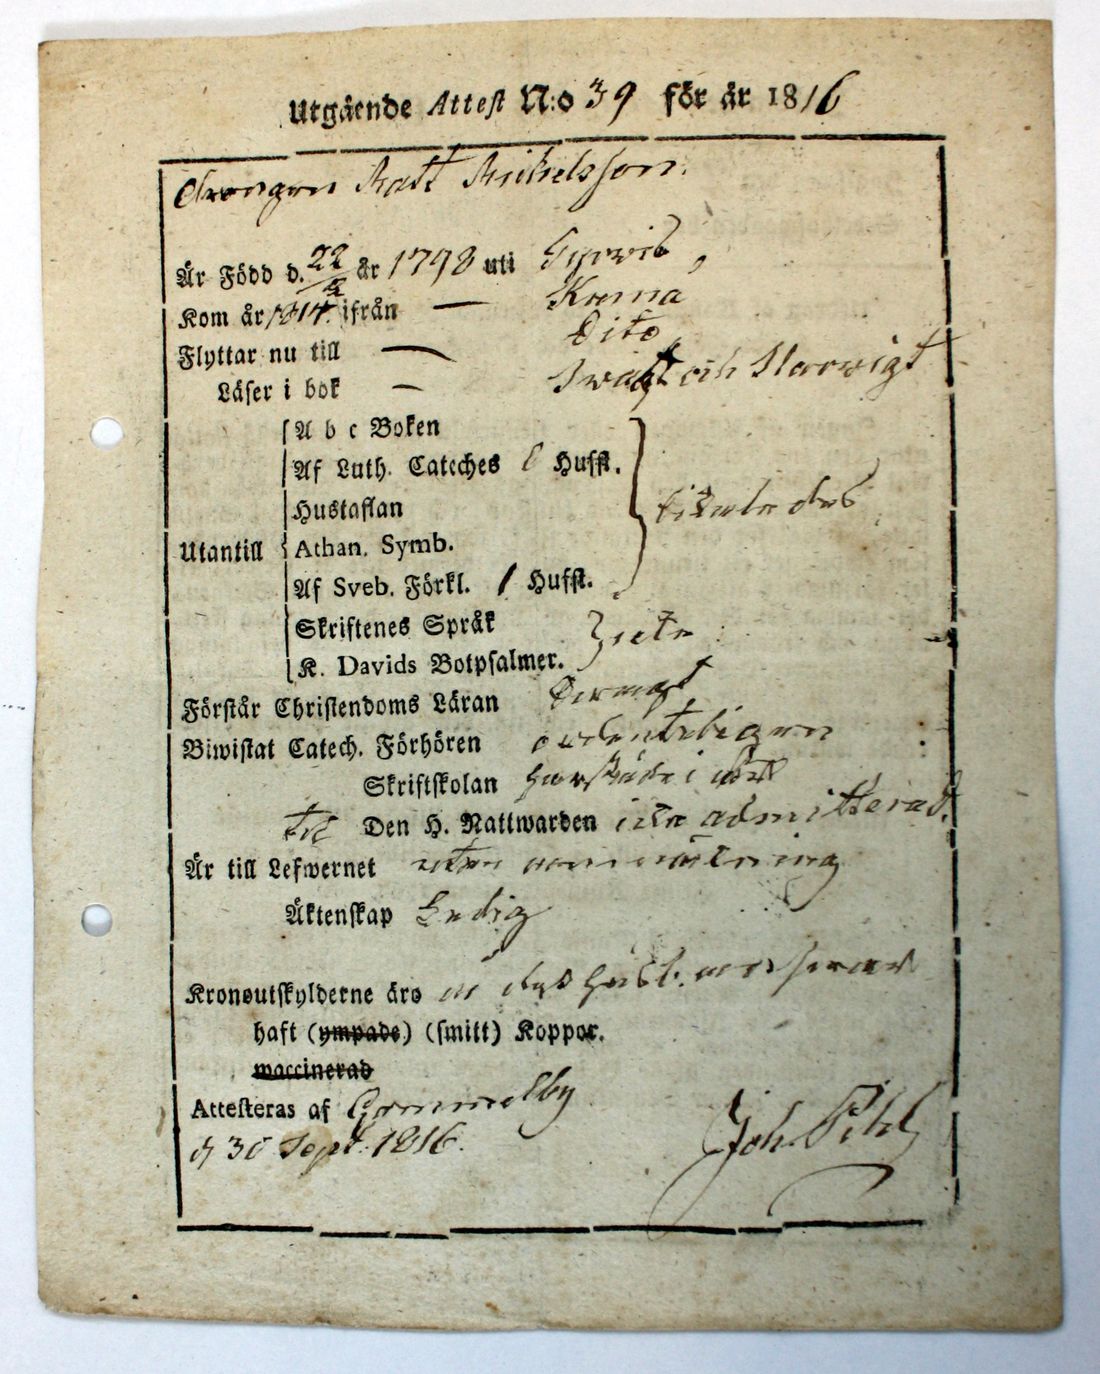 Utgående Attest N:o 39 för år 1816
Drengen Matt Mickelsson.
Är Född d. 22 år 1798 uti
Kom år 1814. ifrån — Kumo
Flyttar nu till — Dito
Läser i bok — Swagt och Slarwigt
A b c Boken
Af Luth. Cateches Hufst.
Hustaflan
Utantill Athan. Symb.
Af Sveb. Förkl. 1 Hufst.
Skriftenes Språk
K. Davids Botpsalmer.
Förstår Christendoms Läran swagt
Biwistat Catech. Förhören ordenteligen
Skriftskolan
till Den H. Nattwarden icke admitterad.
Är till Lefwernet utan anmärkning
Äktenskap Ledig
Kronoutskylderne äro
haft (ympade) (smitt) Koppor.
waccinerad
Attesteras af Gammelby
d 30 Sept: 1816. Joh. Pihl